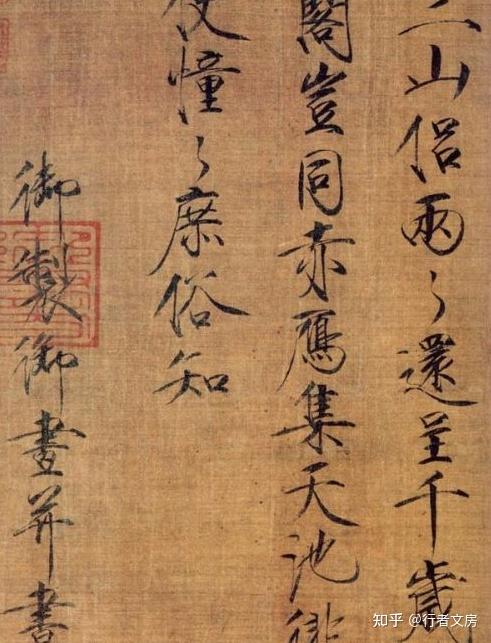 三山侶兩々還呈千歲
閣豈同赤鴈集天池徘
使憧々庶俗知
御製御畫并書
知乎 @行者文房